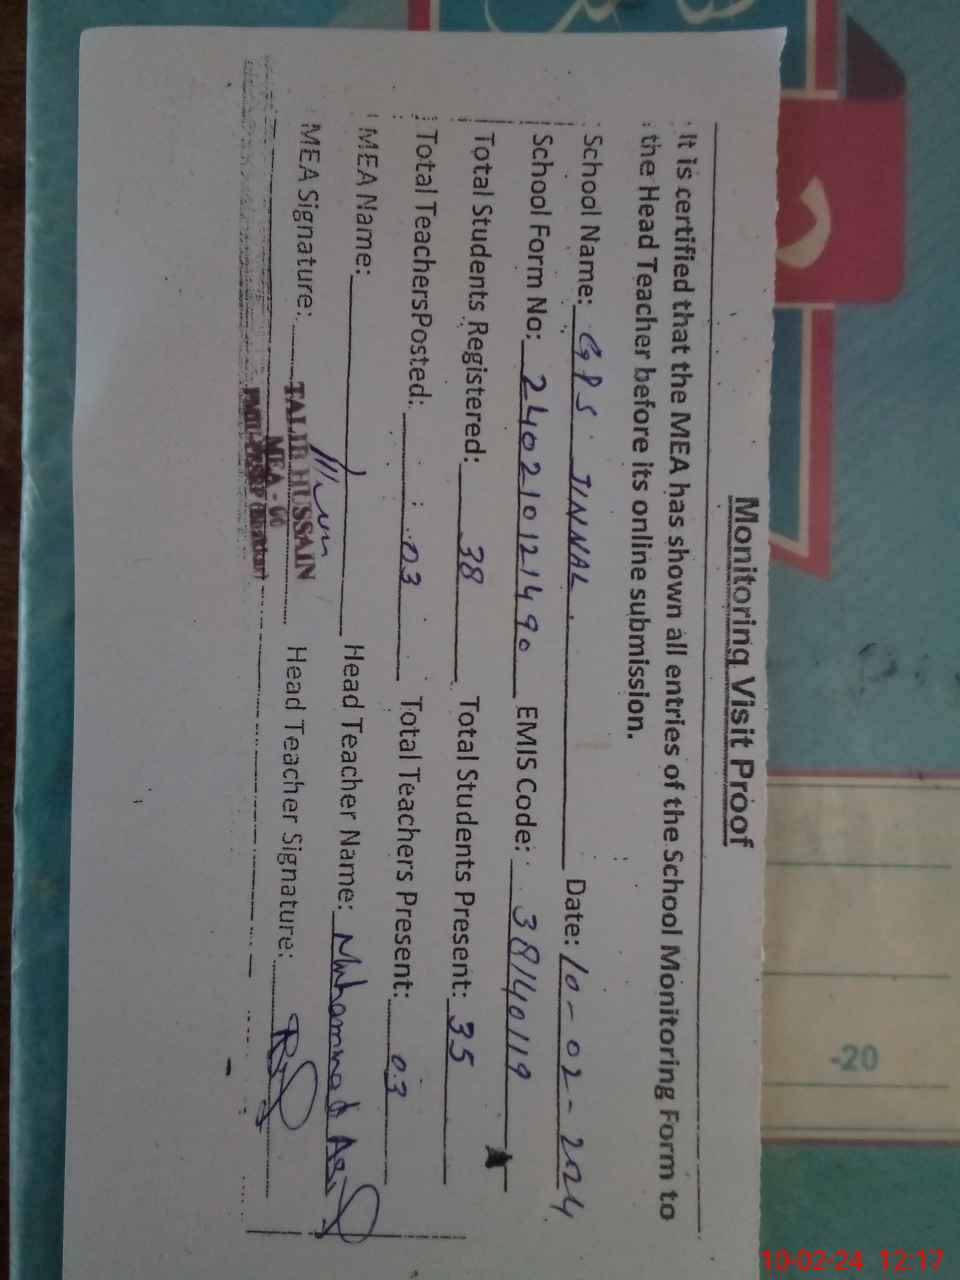 Monitoring Visit Proof
It is certified that the MEA has shown all entries of the School Monitoring Form to
the Head Teacher before its online submission.
School Name: GPS JINNAL Date: 10-02-2024
School Form No: 24021012 1490 EMIS Code: 38140119
Total Students Registered: 38 Total Students Present: 35
Total TeachersPosted: 03 Total Teachers Present: 03
MEA Name: Head Teacher Name: Muhammad
MEA Signature: Head Teacher Signature:
TALIB HUSSAIN
MEA -
-20
10-02-24 12:17